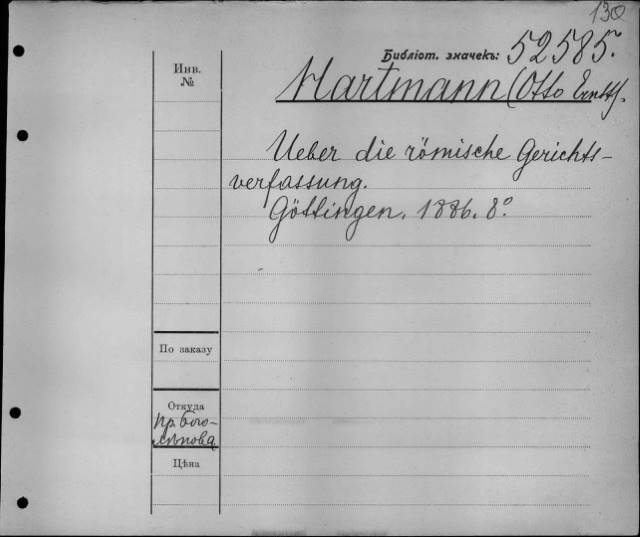 130
Библіот. значекъ: 52585.
Инв.
№
Hartmann (Otto Ernst).
Ueber die römische Gerichts-
verfassung.
Göttingen. 1886. 8°.
По заказу
Откуда
Пр. Бого-
лѣпова
Цѣна